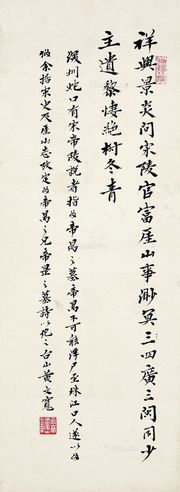 祥興景炎問宋陵官富厓山事渺冥三四廣三闊同少
主遺黎悽絕樹冬青
深圳蛇口有宋帝陵說者指為帝昺之墓帝昺不可能浮尸至珠江口人遂以為
余指宋史及厓山志考定為帝昺之兄帝昰之墓詩以紀之台山黃文寬